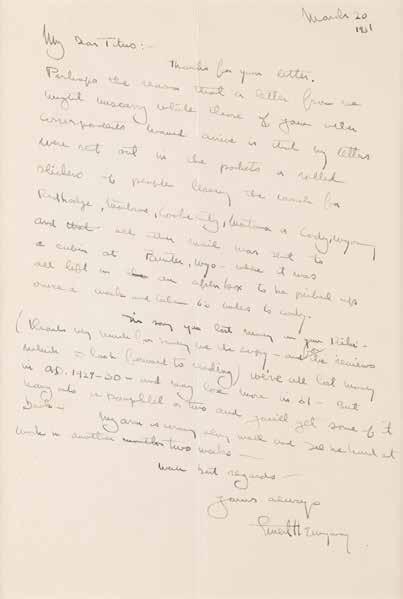 March 20
1931
My Dear Titus:-
Thanks for your letter.
Perhaps the reason that a letter from me
might miscarry while those of your other
correspondents arrive is that my letters
were sent out in the pockets of
slickers of people leaving the ranch for
Cooke City, Montana or Cody, Wyoming
and that all other mail was sent to
a cabin at Painter, Wyo - where it was
all left in an open box to be picked up
once a week and taken 60 miles to Cody.
I'm sorry you lost money on your
(thanks very much for sending me the copy - and the reviews
which I look forward to reading) We've all lost money
in A.D. 1929-30 - and may lose more in 31 - But
a pamphlet or two and you'll get some of it
back -
My arm is very well and I'll be hard at
work in another two weeks -
With best regards -
Yours always
Ernest Hemingway